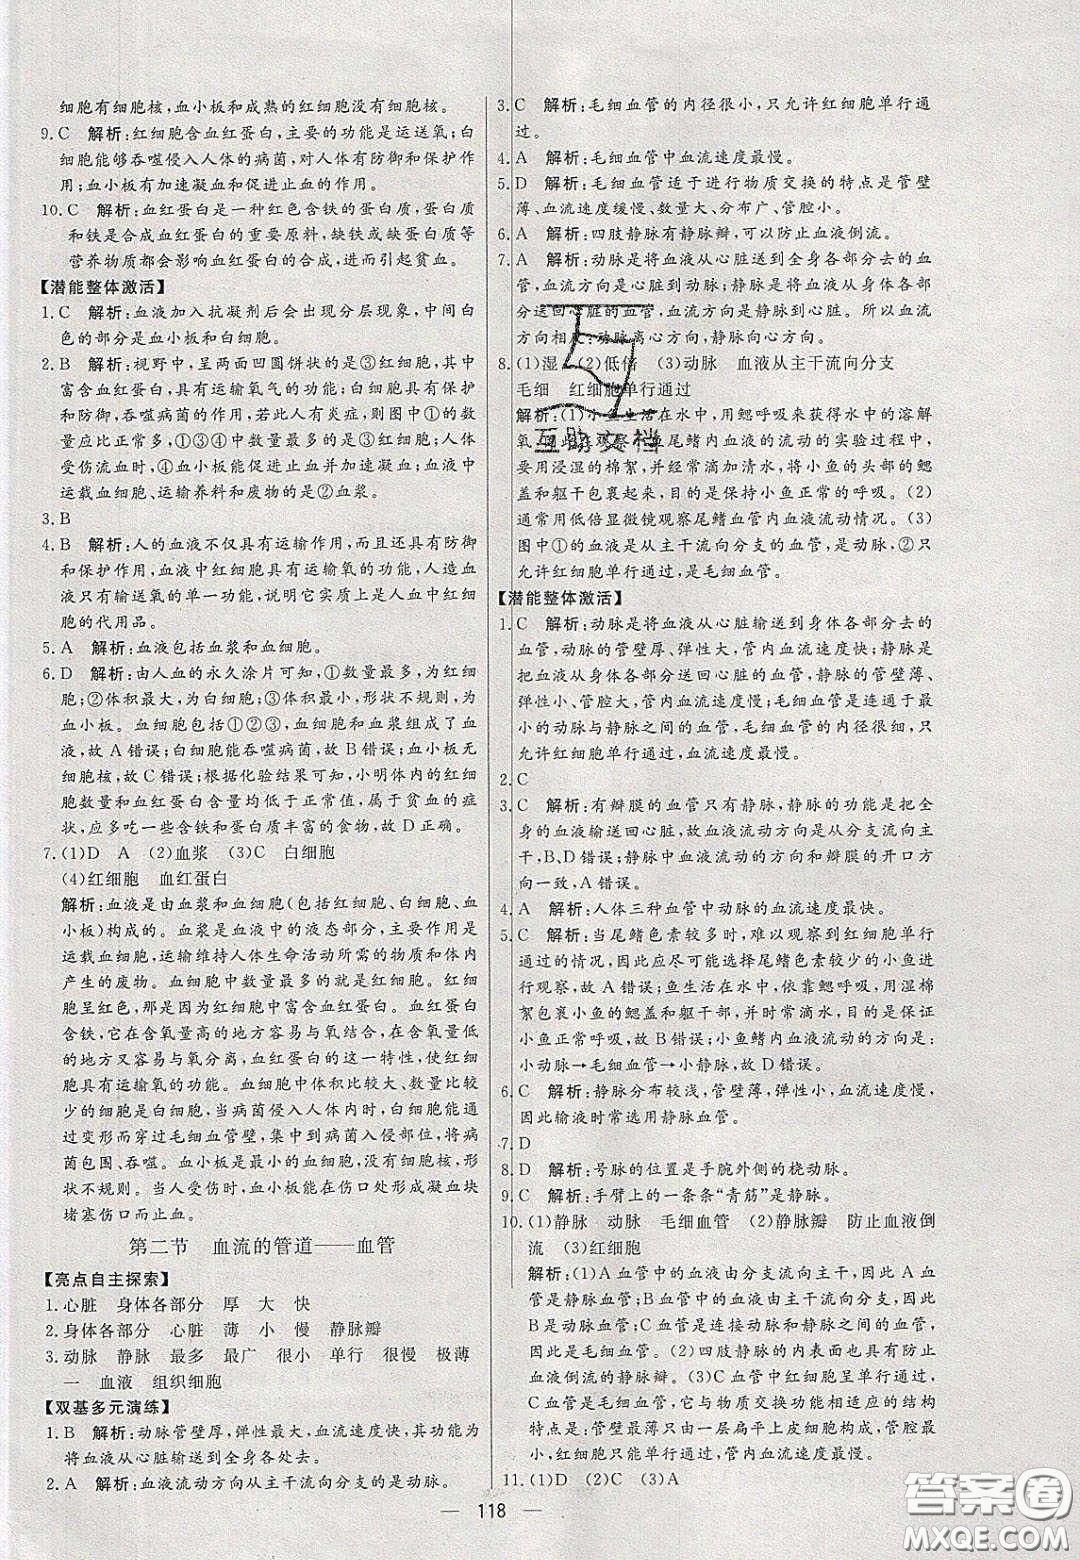 细胞有细胞核,血小板和成熟的红细胞没有细胞核。
9. C 解析:红细胞含血红蛋白,主要的功能是运送氧;白
细胞能够吞噬侵入人体的病菌,对人体有防御和保护作
用;血小板有加速凝血和促进止血的作用。
10. C 解析:血红蛋白是一种红色含铁的蛋白质,蛋白质
和铁是合成血红蛋白的重要原料,缺铁或缺蛋白质等
营养物质都会影响血红蛋白的含量,进而引起贫血。
【潜能整体激活】
1. C 解析:血液加入抗凝剂后会出现分层现象,中间白
色的部分是血小板和白细胞。
2. B 解析:视野中,呈两面凹圆饼状的是③红细胞,其中
富含血红蛋白,具有运输氧气的功能;白细胞具有保护
和防御,吞噬病菌的作用,若人体有炎症,则图中①的数
量多于正常值;①③④三种结构都具有保护作用,当人
受伤流血时,④血小板能促进止血并加速凝血;血液中
运载血细胞,运输养料和废物的是②血浆。
3. B
4. B 解析:人的血液不仅具有运输作用,而且还具有防
御和保护作用,血液中红细胞具有运输氧的功能,人造血
液只有输送氧的单一功能,说明它实质上是人血中红细胞
的代用品。
5. A 解析:血液包括血浆和血细胞。
6. D 解析:由人血的永久涂片可知,①数量最多,是红细
胞;②体积最大,为白细胞;③体积最小,形状不规则,为
血小板。血细胞包括①②③,血细胞和血浆组成了血
液,故 A 错误;白细胞能吞噬病菌,故 B 错误;血小板无
细胞核,故 C 错误;根据化验结果,小明体内的红细
胞和血红蛋白含量均低于正常值,属于贫血的症
状,应多吃一些含铁和蛋白质丰富的食物,故 D 正确。
7. (1)D A (2)血浆 (3)C 白细胞
(4)红细胞 血红蛋白
解析:血液是由血浆和血细胞(包括红细胞、白细胞、血
小板)构成的。血浆是血液中的液态部分,主要作用是
运载血细胞,运输维持人体生命活动所需的物质和体内
产生的废物。血细胞中数量最多的就是红细胞。红细
胞呈红色,那是因为红细胞中富含血红蛋白。血红蛋白
含铁,它在含氧量高的地方容易与氧结合,在含氧量低
的地方又容易与氧分离,血红蛋白的这一特性,使红细
胞具有运输氧的功能。血细胞中体积比较大、数量比较
少的细胞是白细胞,当病菌侵入人体时,白细胞能够通
过变形而穿过毛细血管壁,集中到病菌入侵部位,将病
菌包围、吞噬。血小板是最小的血细胞,无细胞核,形
状不规则。当人受伤时,血小板能在伤口处形成凝血块
堵塞伤口而止血。
第二节 血流的管道——血管
【亮点自主探索】
1. 心脏 身体各部分 厚 大 快
2. 身体各部分 心脏 薄 小 慢 静脉瓣
3. 动脉 静脉 最多 最广 很小 单行 很慢 极薄
一 血液 组织细胞
【双基多元演练】
1. B 解析:动脉管壁厚,弹性最大,血流速度快,其功能为
将血液从心脏输送到全身各处去。
2. A 解析:血液流动方向从主干流向分支的是动脉。
3. C 解析:毛细血管的内径很小,只允许红细胞单行通
过。
4. A 解析:毛细血管中血流速度最慢。
5. D 解析:毛细血管适于进行物质交换的特点是管壁
薄、血流速度缓慢、数量大、分布广、管腔小。
6. A 解析:四肢静脉有静脉瓣,可以防止血液倒流。
7. A 解析:动脉是将血液从心脏送到全身各部分去的血
管,血流方向是心脏到动脉;静脉是将血液从身体各部
分送回心脏的血管,血流方向是静脉到心脏。所以血流
方向相反:动脉离心方向,静脉向心方向。
8. (1)湿 (2)低倍 (3)动脉 血液从主干流向分支
毛细 红细胞单行通过
解析:(1)小鱼生活在水中,用鳃呼吸来获得水中的溶解
氧,因此在观察小鱼尾鳍内血液的流动的实验过程中,
要用浸湿的棉絮,并时常滴加清水,将小鱼的头部的鳃
盖和躯干包裹起来,目的是保持小鱼正常的呼吸。(2)
通常用低倍显微镜观察尾鳍血管内血液流动情况。(3)
图中①的血液是从主干流向分支的血管,是动脉,②只
允许红细胞单行通过,是毛细血管。
【潜能整体激活】
1. C 解析:动脉是将血液从心脏输送到身体各部分去的
血管,动脉的管壁厚、弹性大,管内血流速度快;静脉是
把血液从身体各部分送回心脏的血管,静脉的管壁薄、
弹性小,管腔大,血流速度慢;毛细血管是连通于最
小的动脉与静脉之间的血管,毛细血管的内径很细,只
允许红细胞单行通过,血流速度最慢。
2. C
3. C 解析:有瓣膜的血管只有静脉,静脉的功能是把全
身的血液输送回心脏,故血液流动方向为从分支到主
干,B、D 错误;静脉中血液流动的方向和瓣膜的开口方
向一致,A 错误。
4. A 解析:人体三种血管中动脉的血流速度最快。
5. C 解析:当尾鳍色素较多时,难以观察到红细胞单行
通过的情况,因此应尽可能选择尾鳍色素较少的小鱼进
行观察,故 A 错误;鱼生活在水中,依靠鳃呼吸,用湿棉
絮包裹小鱼的鳃盖和躯干部,并时常滴水,是保证小鱼
正常呼吸,故 B 错误;小鱼尾鳍内血液的流动的方向是:
小动脉→毛细血管→小静脉,故 D 错误。
6. C 解析:静脉分布较浅,管壁薄,弹性小,血流速度慢,
因此输液时常选用静脉血管。
7. D
8. D 解析:号脉的位置是手腕外侧的桡动脉。
9. C 解析:手臂上的一条条“青筋”是静脉。
10. (1)静脉 动脉 毛细血管 (2)静脉瓣 防止血液倒
流 (3)红细胞
解析:(1)A 血管中的血液由分支流向主干,因此 A 血
管是静脉血管;B 血管中血液是由主干流向分支,因此
B 是动脉血管;C 血管是连接动脉和静脉的血管,因此
C 是毛细血管。(2)四肢静脉的内表面也具有防止
血液倒流的静脉瓣。(3)C 中红细胞呈单行流动,因此
C 血管是毛细血管,毛细血管与其功能相适应的结构
特点是:管壁最薄只由一层扁平上皮细胞构成,管腔最
小,红细胞只能单行通过,管内血流速度最慢。
11. (1)D (2)C (3)A
118
互助文档
答案圈
MXQE.COM